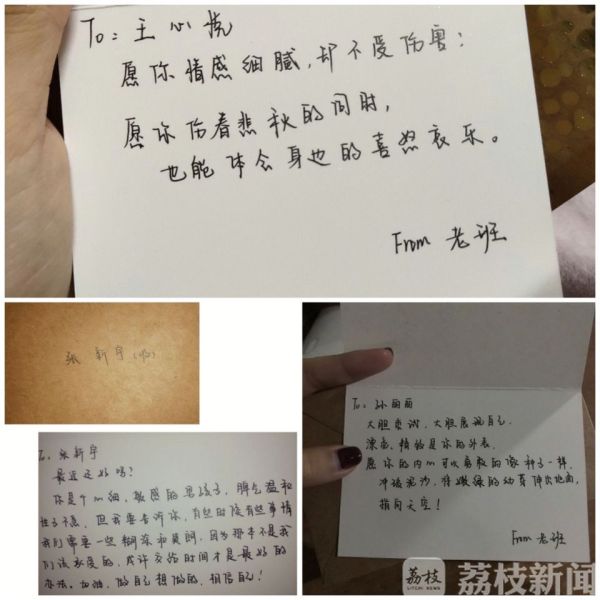 To: 王心
愿你情感细腻,却不受伤害;
愿你伤春悲秋的同时,
也能体会身边的喜怒哀乐。
From 老班
张新宇(收)
To. 张新宇
最近还好吗?
你是个心细、敏感的男孩子,脾气温和
性子不急。但我要告诉你,有些时候有些事情
我们需要一些糊涂和莫问。因为那本不是我
们该承受的,或许交给时间才是最好的
办法。加油,做自己想做的,相信自己!
To: 孙丽丽
大胆尝试,大胆展现自己。
漂亮、精致是你的外表。
愿你的内心可以勇敢的像种子一样,
冲破泥沙,将嫩绿的幼芽伸出地面,
指向天空!
From 老班
荔枝
LITCHI NEWS
荔枝新闻